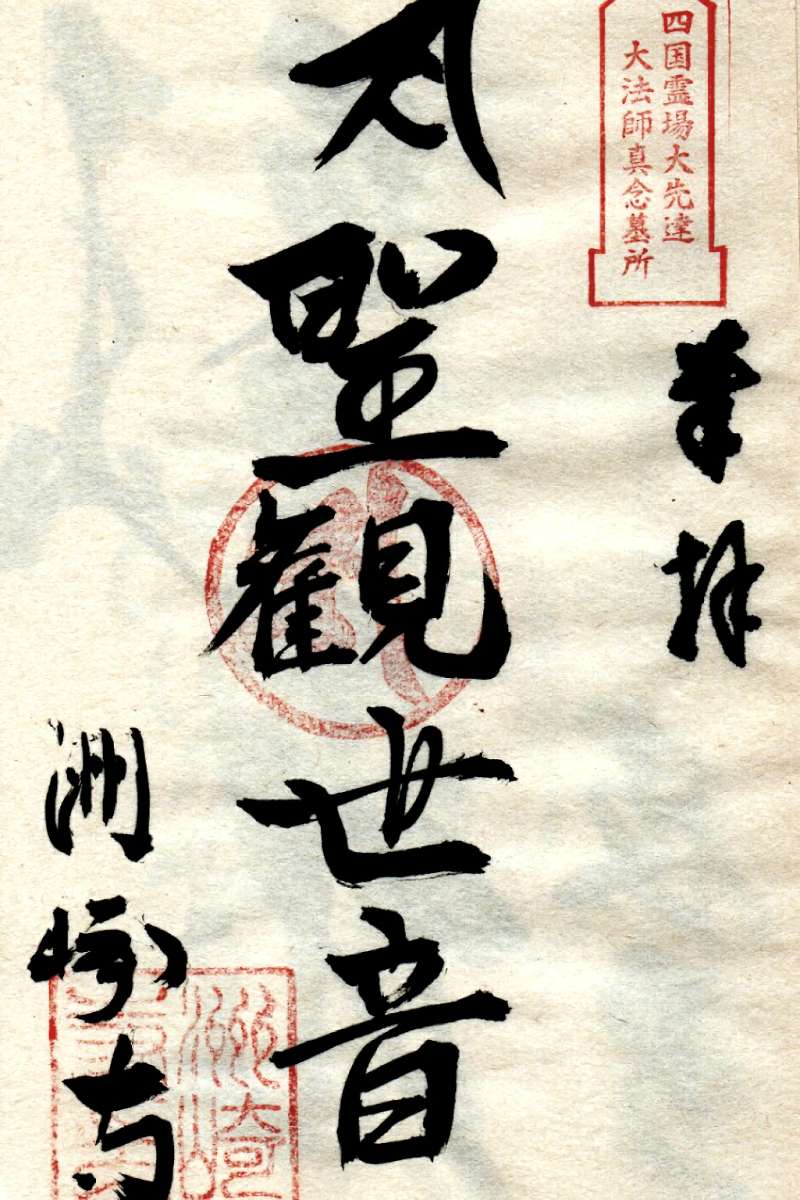 四国霊場大先達
大法師真念墓所
奉拝
聖観世音
洲崎寺